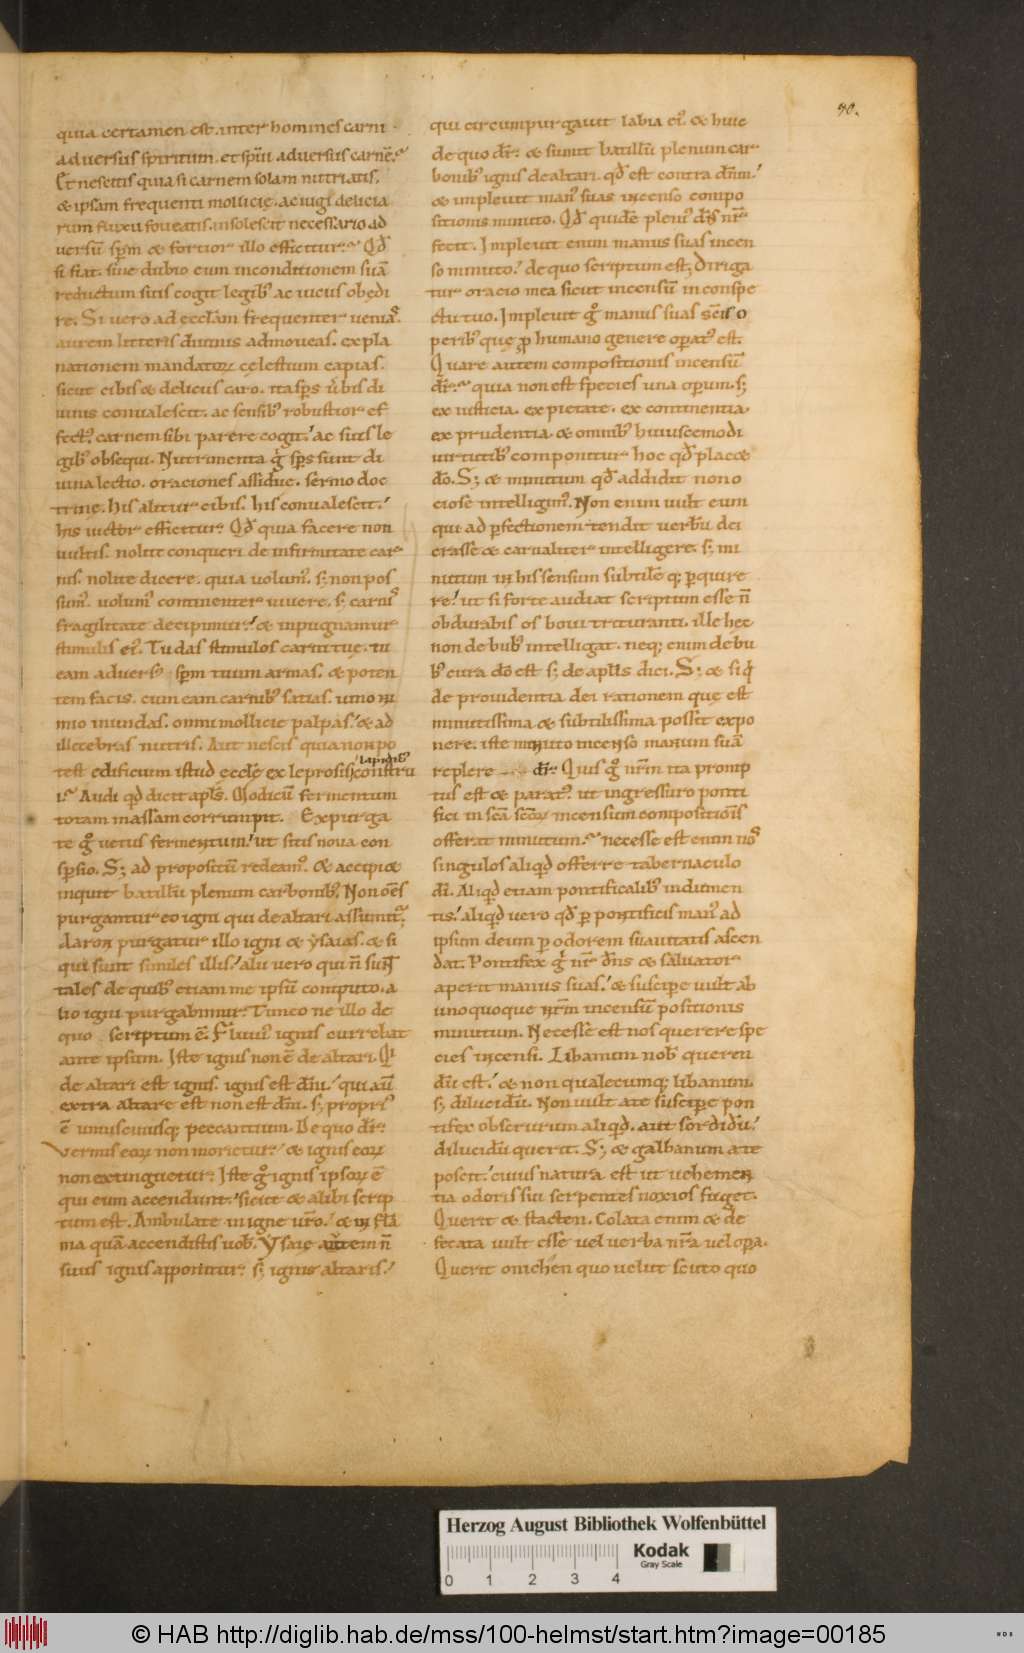 90.
quia certamen est inter homines carni
adversus spiritum. et spm̄ adversus carnē.
Et nescitis quia si carnem solam nutriatis.
& ipsam frequenti mollicie. ac iugi delicia
rum fluxu foveatis. insolescit necessario ad
versū spm̄ & fortior illo efficitur. Qd̄
si fiat. sine dubio eum in conditionem suā
reductum suis cogit legib; ac uiciis obędi
re. Si uero ad eccl̄am frequenter uenias.
aurem litteris diuinis admoueas. expla
nationem mandatoꝝ cęlestium capias.
sicut cibis & deliciis caro. ita sp̄s u̅bis di
uinis conualescit. ac sensib; robustior ef
fect᷒ carnem sibi parere cogit. ac suis le
gib; obsequi. Nutrimenta g̊ sp̄s sunt di
uina lectio. oraciones assiduę. sermo doc
trinę. his alitur cibis. his conualescit.
his uictor efficitur. Qd̄ quia facere non
uultis. nolite conqueri de infirmitate car
nis. nolite dicere. quia uolum᷒. s; non pos
sum᷒. uolum᷒ continenter uiuere. s; carnis
fragilitate decipimur. & inpugnamur
stimulis ei᷒. Tu das stimulos carni tuę. tu
eam advers᷒ sp̄m tuum armas. & poten
tem facis. cum eam carnib; satias. uino ni
mio inundas. omni mollicie palpas. & ad
illecebras nutris. Aut nescis quia non po
test edificium istud eccl̄ę ex leprosis lapidib; constru
i. Audi qd̄ dicit apl̄s. Modicū fermentum
totam massam corrumpit. Expurga
te g̊ uetus fermentum. ut sitis noua con
spersio. S; ad propositū redeam᷒. & accipi&
inquit batillū plenum carbonib;. Non om̄s
purgantur eo igni qui de altari assumit᷒.
Aaron purgatur illo igni & ysaias. & si
qui sunt similes illis. alii uero qui n̄ sunt
tales de quib; etiam me ipsū computo. a
lio igni purgabimur. Timeo ne illo de
quo scriptum ē. Fluuius ignis currebat
ante ipsum. Iste ignis non ē de altari. Qi
de altari est ignis. ignis est dn̄i. qui aū
extra altare est non est dn̄i. s; propri᷒
ē uniuscuiusq; peccantium. De quo dr̄.
Vermis eoꝝ non morietur. & ignis eoꝝ
non extinguetur. Iste g̊ ignis ipsoꝝ ē
qui eum accendunt. sicut & alibi scrip
tum est. Ambulate in igne ur̄o. & in flā
ma quā accendistis uob̄. Ysaię autem n̄
suus ignis apponitur. s; ignis altaris.
qui circumpurgauit labia ei᷒. & huic
de quo dr̄. & sumit batillū plenum car
bonib; ignis de altari. qd̄ est contra dn̄m.
& impleuit man᷒ suas incenso compo
sitionis minuto. Qd̄ quidē pleni᷒ dn̄s nr̄
fecit. Impleuit enim manus suas incen
so minuto. de quo scriptum est. Diriga
tur oracio mea sicut incensū in conspe
ctu tuo. Impleuit g̊ manus suas sc̄is o
perib; quę ꝓ humano genere opat᷒ est.
Quare autem compositionis incensū
dr̄. quia non est species una operum. s;
ex iusticia. ex pietate. ex continentia.
ex prudentia. & omnib; huiuscemodi
uirtutib; componitur hoc qd̄ plac&
dō. S; & minutum qd̄ addidit non o
ciose intelligim᷒. Non enim uult eum
qui ad perfectionem tendit uerbū dei
crasse & carnaliter intelligere. s; mi
nutum in his sensum subtilē q; ꝑquire
re. ut si forte audiat scriptum esse n̄
obdurabis os boui trituranti. ille hec
non de bub; intelligat. neq; enim de bu
b; cura dō est s; de apl̄is dici. S; & siq̇
de prouidentia dei rationem quę est
minutissima & subtilissima possit expo
nere. iste minuto incenso manum suā
replere dr̄. Quis g̊ nr̄m ita promp
tus est & parat᷒. ut ingressuro ponti
fici in sc̄a sc̄oꝝ incensum compositiōis
offerat minutum. Necesse est enim nos
singulos aliqd̄ offerre tabernaculo
dn̄i. Aliqd̄ etiam pontificalib; indumen
tis. aliqd̄ uero qd̄ ꝑ pontificis man᷒ ad
ipsum deum ꝑ odorem suauitatis ascen
dat. Pontifex g̊ nr̄ dn̄s & saluator
aperit manus suas. & suscipe uult ab
unoquoque nr̄m incensū positionis
minutum. Necesse est nos querere spe
cies incensi. Libanum nob̄ queren
dū est. & non qualecumq; libanum.
s; dilucidū. Non uult a te suscipe pon
tifex obscurum aliqd̄. aut sordidū.
dilucidū querit. S; & galbanum a te
poscit. cuius natura est ut uehemen
tia odoris sui serpentes noxios fuget.
Querit & stacten. Colata enim & de
fecata uult esse uel uerba nr̄a uel opa.
Querit onichen quo uelut scuto quo
Herzog August Bibliothek Wolfenbüttel
Kodak
Gray Scale
0 1 2 3 4
© HAB http://diglib.hab.de/mss/100-helmst/start.htm?image=00185